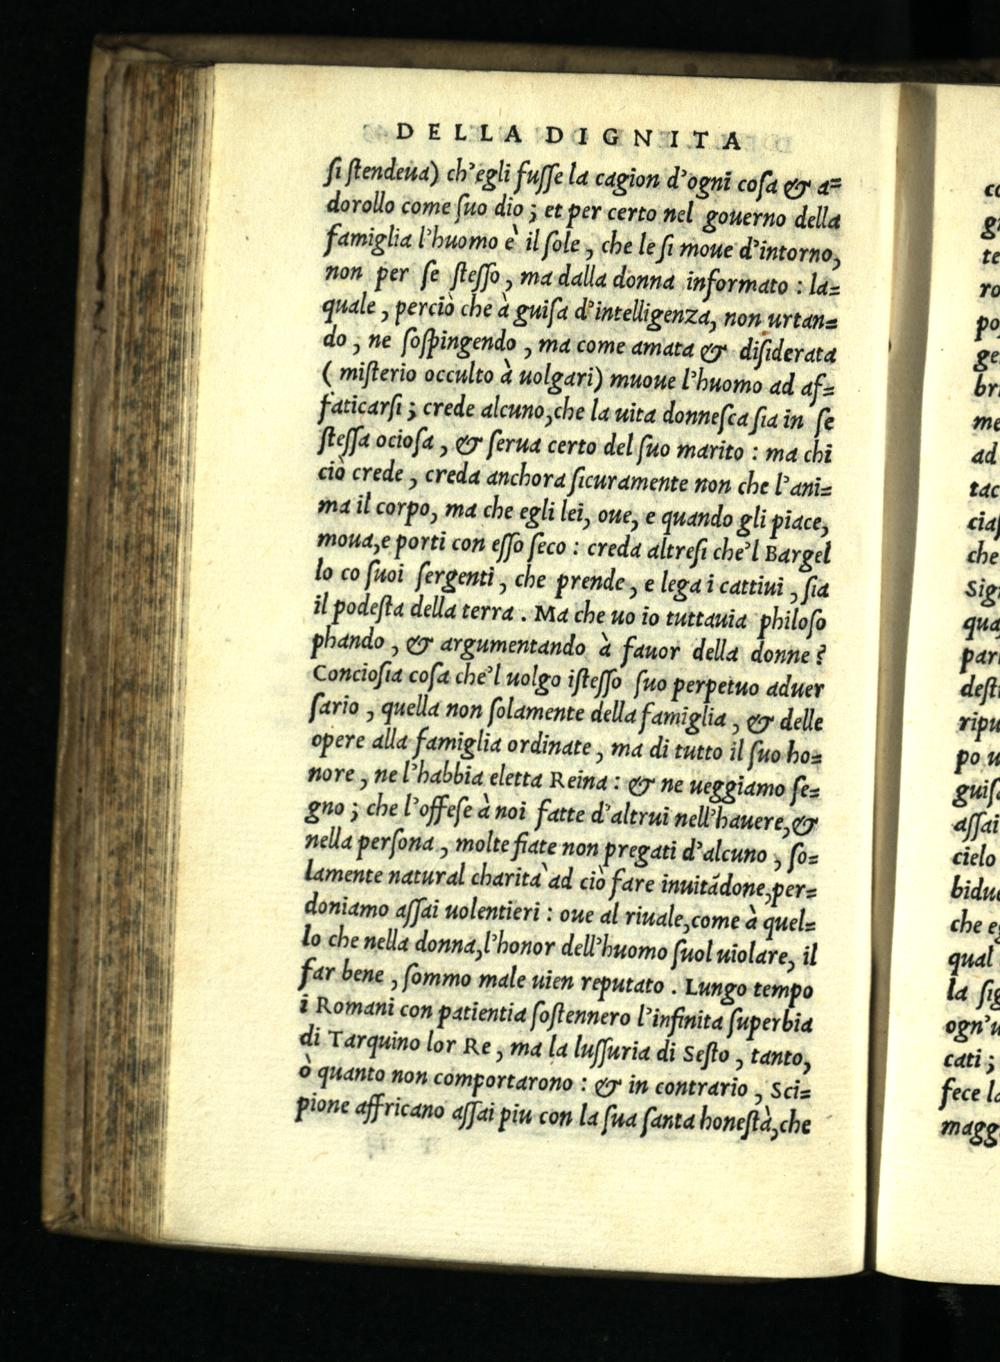 DELLA DIGNITA
si stendeua) ch'egli fusse la cagion d'ogni cosa & a=
dorollo come suo dio ; et per certo nel gouerno della
famiglia l'huomo è il sole , che le si moue d'intorno,
non per se stesso , ma dalla donna informato : la=
quale , perciò che à guisa d'intelligenza, non urtan=
do , ne sospingendo , ma come amata & disiderata
( misterio occulto à uolgari) muoue l'huomo ad af=
faticarsi ; crede alcuno,che la uita donnesca sia in se
stessa ociosa , & serua certo del suo marito : ma chi
ciò crede , creda anchora sicuramente non che l'ani=
ma il corpo, ma che egli lei, oue, e quando gli piace,
moua,e porti con esso seco : creda altresi che'l Bargel
lo co suoi sergenti , che prende , e lega i cattiui , sia
il podesta della terra . Ma che uo io tuttauia philoso
phando , & argumentando à fauor della donne?
Conciosia cosa che'l uolgo istesso suo perpetuo aduer
sario , quella non solamente della famiglia , & delle
opere alla famiglia ordinate , ma di tutto il suo ho=
nore , ne l'habbia eletta Reina : & ne ueggiamo se=
gno ; che l'offese à noi fatte d'altrui nell'hauere,&
nella persona , molte fiate non pregati d'alcuno , so=
lamente natural charità ad ciò fare inuitãdone,per=
doniamo assai uolentieri : oue al riuale,come à quel=
lo che nella donna,l'honor dell'huomo suol uiolare, il
far bene , sommo male uien reputato . Lungo tempo
i Romani con patientia sostennero l'infinita superbia
di Tarquino lor Re , ma la lussuria di Sesto , tanto,
ò quanto non comportarono : & in contrario , Sci=
pione affricano assai piu con la sua santa honestà,che